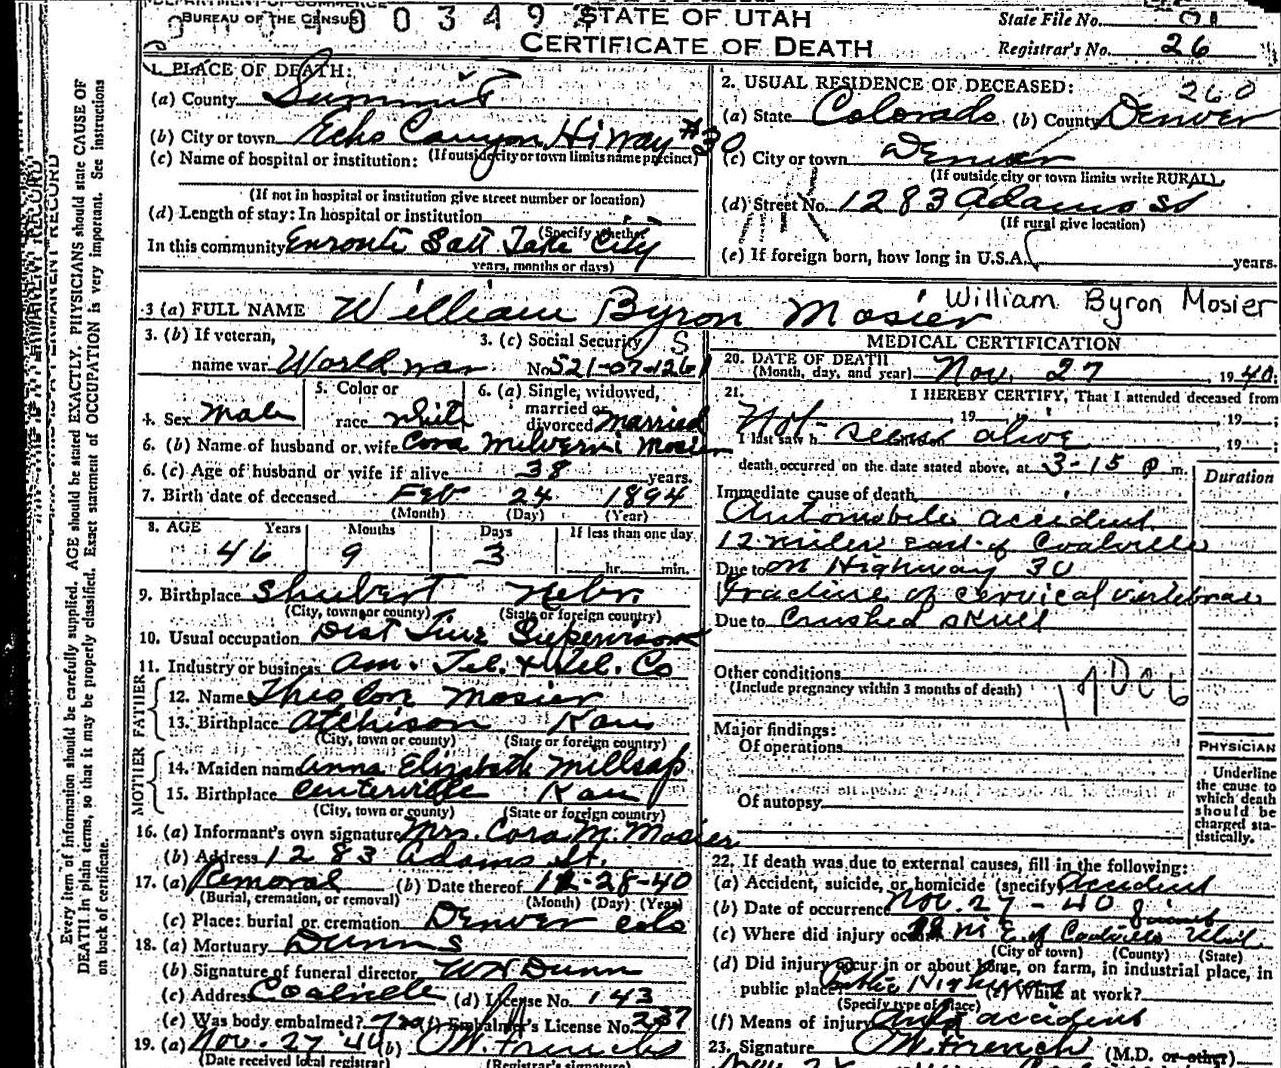 DEPARTMENT OF COMMERCE
BUREAU OF THE CENSUS
0 0 3 4 9
STATE OF UTAH
CERTIFICATE OF DEATH
State File No.
Registrar's No. 26
1. PLACE OF DEATH:
(a) County Summit
(b) City or town Echo Canyon Hiway #30
(If outside city or town limits name precinct)
(c) Name of hospital or institution:
(If not in hospital or institution give street number or location)
(d) Length of stay: In hospital or institution
(Specify whether
In this community Enroute Salt Lake City
years, months or days)
2. USUAL RESIDENCE OF DECEASED: 260
(a) State Colorado (b) County Denver
(c) City or town Denver
(If outside city or town limits write RURAL)
(d) Street No. 1283 Adams St
(If rural give location)
(e) If foreign born, how long in U.S.A. years.
3 (a) FULL NAME William Byron Mosier William Byron Mosier
3. (b) If veteran,
name war World war
3. (c) Social Security
No. 521-07-1261
4. Sex Male
5. Color or
race White
6. (a) Single, widowed,
married or
divorced Married
6. (b) Name of husband or wife Cora Mosier
6. (c) Age of husband or wife if alive 38 years.
7. Birth date of deceased Feb 24 1894
(Month) (Day) (Year)
8. AGE Years Months Days If less than one day
46 9 3 hr. min.
9. Birthplace Shubert Nebr
(City, town or county) (State or foreign country)
10. Usual occupation Dist Line Supervisor
11. Industry or business Am. Tel. & Tel. Co
FATHER
12. Name Mosier
13. Birthplace Atchison Kans
(City, town or county) (State or foreign country)
MOTHER
14. Maiden name Anna Elizabeth Millsap
15. Birthplace Centerville Kan
(City, town or county) (State or foreign country)
16. (a) Informant's own signature Mrs. Cora M. Mosier
(b) Address 1283 Adams St.
17. (a) Removal (b) Date thereof 28-40
(Burial, cremation, or removal) (Month) (Day) (Year)
(c) Place: burial or cremation Denver Colo
18. (a) Mortuary Dunns
(b) Signature of funeral director W H Dunn
(c) Address Coalville (d) License No. 143
(e) Was body embalmed? (f) Embalmer's License No. 237
19. (a) Nov. 27 (b) O.W. French
(Date received local registrar) (Registrar's signature)
MEDICAL CERTIFICATION
20. DATE OF DEATH
(Month, day, and year) Nov. 27 1940.
21. I HEREBY CERTIFY, That I attended deceased from
Not 19 19
I last saw h seen alive 19
death occurred on the date stated above, at 3-15 P m.
Duration
Immediate cause of death
Automobile accident
12 miles East of Coalville
Due to on Highway 30
Fracture of cervical vertebrae
Due to Crushed skull
Other conditions
(Include pregnancy within 3 months of death)
Major findings:
Of operations
Of autopsy
PHYSICIAN
Underline
the cause to
which death
should be
charged sta-
tistically.
22. If death was due to external causes, fill in the following:
(a) Accident, suicide, or homicide (specify) Accident
(b) Date of occurrence Nov. 27-40
(c) Where did injury occur? mi E. of Coalville Utah
(City or town) (County) (State)
(d) Did injury occur in or about home, on farm, in industrial place, in
public place? Public Highway (e) While at work?
(Specify type of place)
(f) Means of injury Auto accident
23. Signature O.W. French (M.D. or other)
Every item of information should be carefully supplied. AGE should be stated EXACTLY. PHYSICIANS should state CAUSE OF
DEATH in plain terms, so that it may be properly classified. Exact statement of OCCUPATION is very important. See instructions
on back of certificate.